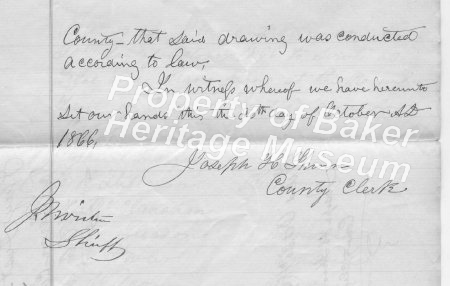 County - that said drawing was conducted
according to law.
In witness whereof we have hereunto
set our hands this the day of October AD
1866,
Joseph H
County Clerk
Sheriff
Property of Baker
Heritage Museum